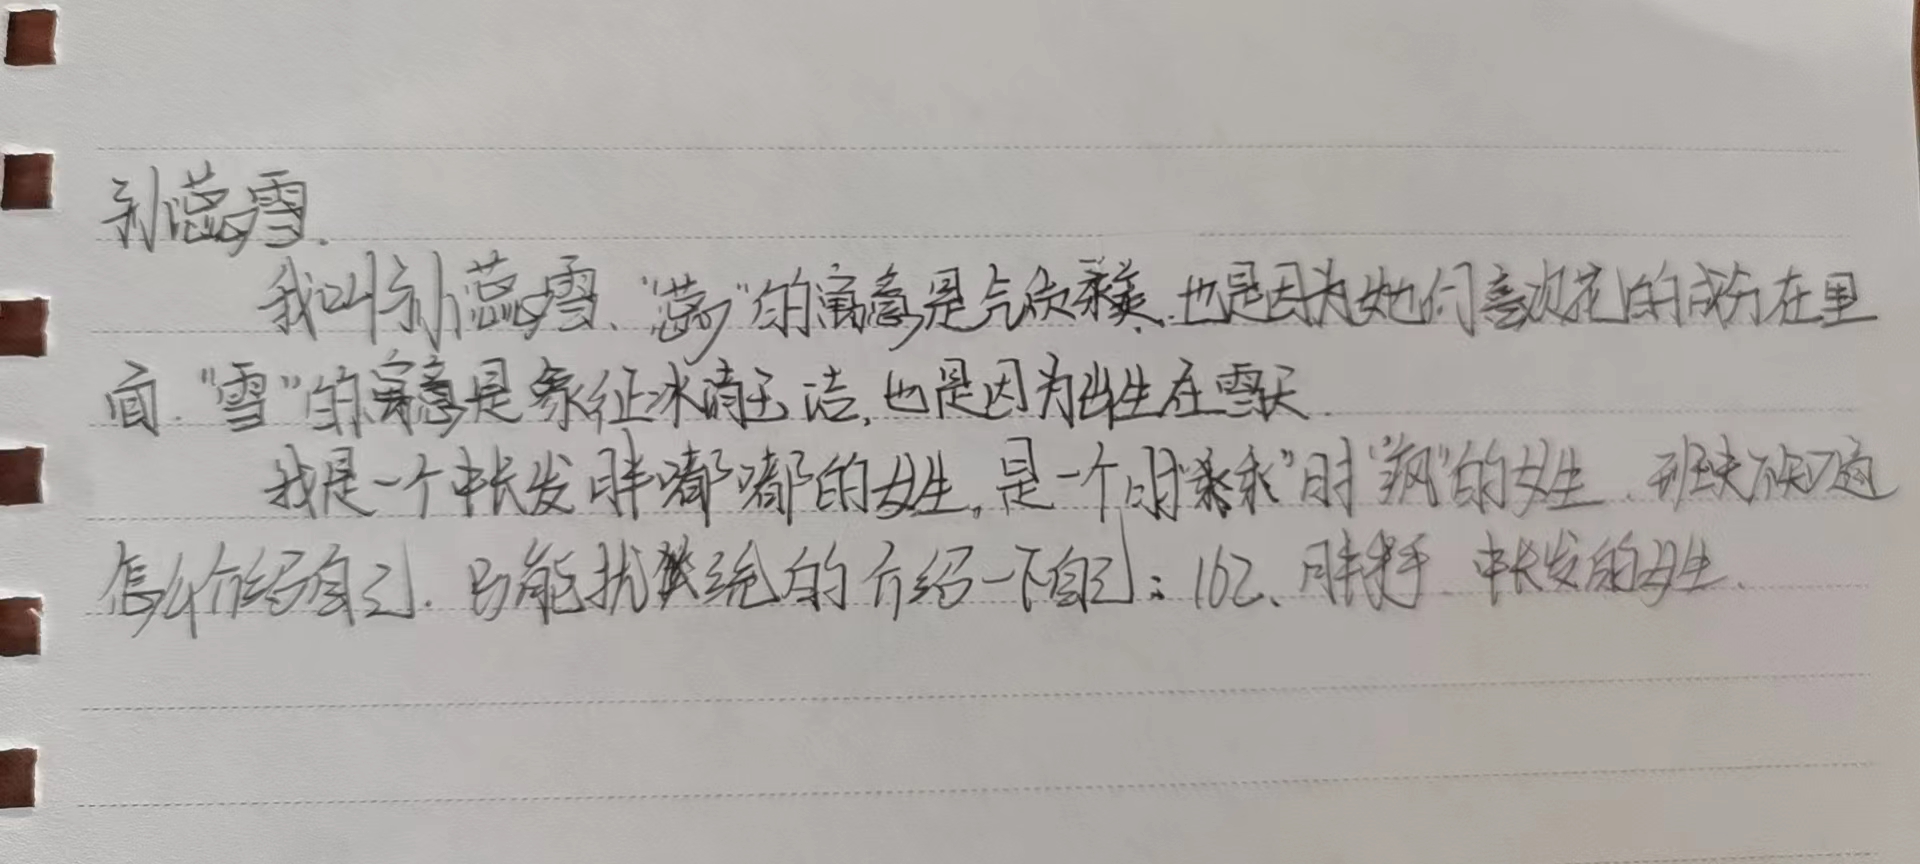 孙蕊雪.
我叫孙蕊雪、"蕊"的寓意是气质柔美.也是因为她们喜欢花的成份在里
面."雪"的寓意是象征冰清玉洁,也是因为出生在雪天.
我是一个中长发胖嘟嘟的女生,是一个时"乖乖"时"疯"的女生.
怎么介绍自己.只能扰统的介绍一下自己:162、胖手.中长发的女生.